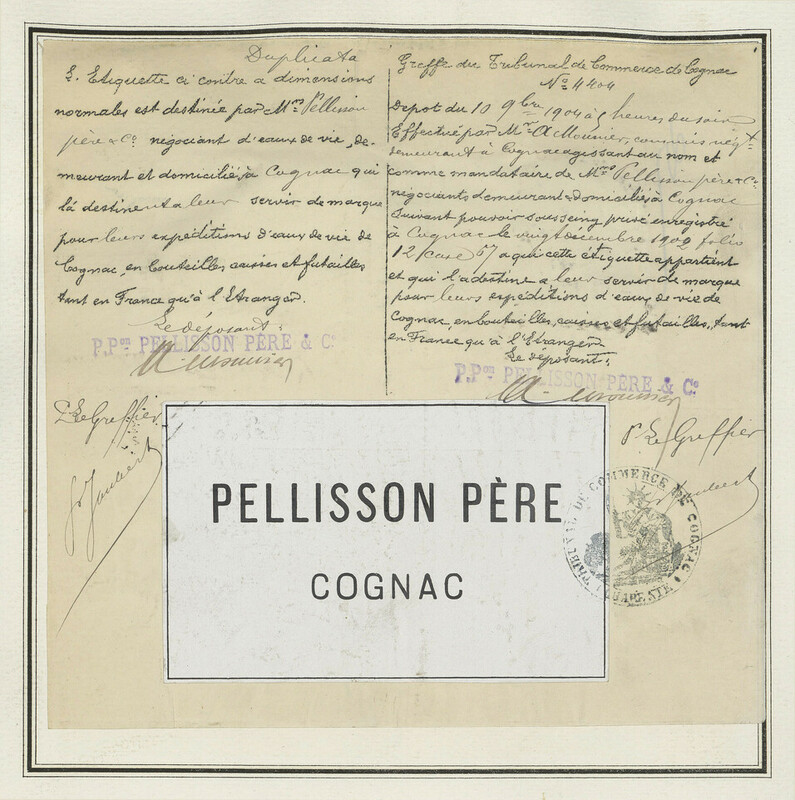 Duplicata
L. Etiquette ci contre a dimensions
normales est destinée par Mrs Pellisson
père & Co négociant d'eaux de vie, de-
meurant et domiciliés, à Cognac qui
la destinent a leur servir de marque
pour leurs expéditions d'eaux de vie de
Cognac, en bouteilles, caisses et futailles
tant en France qu'à l'Etranger.
Le déposant:
P. Pon PELLISSON PÈRE & Co
A. Mounier
P. Le Greffier
Joubert
Greffe du Tribunal de Commerce de Cognac
No 4404
Depot du 10 9bre 1904 à 5 heures du soir
Effectué par Mr A Mounier, commis négt
demeurant à Cognac agissant au nom et
comme mandataire de Mrs Pellisson père & Co
négociants, demeurant & domiciliés, à Cognac
suivant pouvoir sousseing privé enregistré
à Cognac le vingt décembre 1902 folio
12 / Case 57 a qui cette étiquette appartient
et qui l'a destine a leur servir de marque
pour leurs expéditions d'eaux de vie de
Cognac, en bouteilles, caisses et futailles, tant
en France qu'à l'Etranger
Le déposant:
P. Pon PELLISSON PÈRE & Co
A. Mounier
P. Le Greffier
Joubert
PELLISSON PÈRE
COGNAC
TRIBUNAL DE COMMERCE DE COGNAC
(CHARENTE)